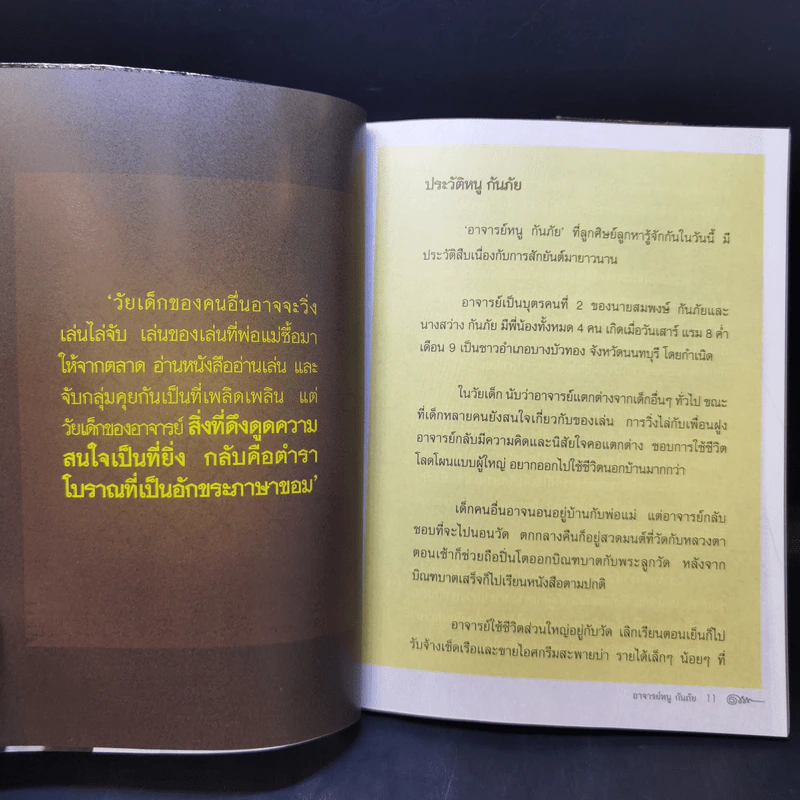 'วัยเด็กของคนอื่นอาจจะวิ่ง
เล่นไล่จับ เล่นของเล่นที่พ่อแม่ซื้อมา
ให้จากตลาด อ่านหนังสืออ่านเล่น และ
จับกลุ่มคุยกันเป็นที่เพลิดเพลิน แต่
วัยเด็กของอาจารย์ สิ่งที่ดึงดูดความ
สนใจเป็นที่ยิ่ง กลับคือตำรา
โบราณที่เป็นอักขระภาษาขอม'
ประวัติหนู กันภัย
'อาจารย์หนู กันภัย' ที่ลูกศิษย์ลูกหารู้จักกันในวันนี้ มี
ประวัติสืบเนื่องกับการสักยันต์มายาวนาน
อาจารย์เป็นบุตรคนที่ 2 ของนายสมพงษ์ กันภัยและ
นางสว่าง กันภัย มีพี่น้องทั้งหมด 4 คน เกิดเมื่อวันเสาร์ แรม 8 ค่ำ
เดือน 9 เป็นชาวอำเภอบางบัวทอง จังหวัดนนทบุรี โดยกำเนิด
ในวัยเด็ก นับว่าอาจารย์แตกต่างจากเด็กอื่นๆ ทั่วไป ขณะ
ที่เด็กหลายคนยังสนใจเกี่ยวกับของเล่น การวิ่งไล่กับเพื่อนฝูง
อาจารย์กลับมีความคิดและนิสัยใจคอแตกต่าง ชอบการใช้ชีวิต
โลดโผนแบบผู้ใหญ่ อยากออกไปใช้ชีวิตนอกบ้านมากกว่า
เด็กคนอื่นอาจนอนอยู่บ้านกับพ่อแม่ แต่อาจารย์กลับ
ชอบที่จะไปนอนวัด ตกกลางคืนก็อยู่สวดมนต์ที่วัดกับหลวงตา
ตอนเช้าก็ช่วยถือปิ่นโตออกบิณฑบาตกับพระลูกวัด หลังจาก
บิณฑบาตเสร็จก็ไปเรียนหนังสือตามปกติ
อาจารย์ใช้ชีวิตส่วนใหญ่อยู่กับวัด เลิกเรียนตอนเย็นก็ไป
รับจ้างเช็ดเรือและขายไอศกรีมสะพายบ่า รายได้เล็กๆ น้อยๆ ที่
อาจารย์หนู กันภัย 11